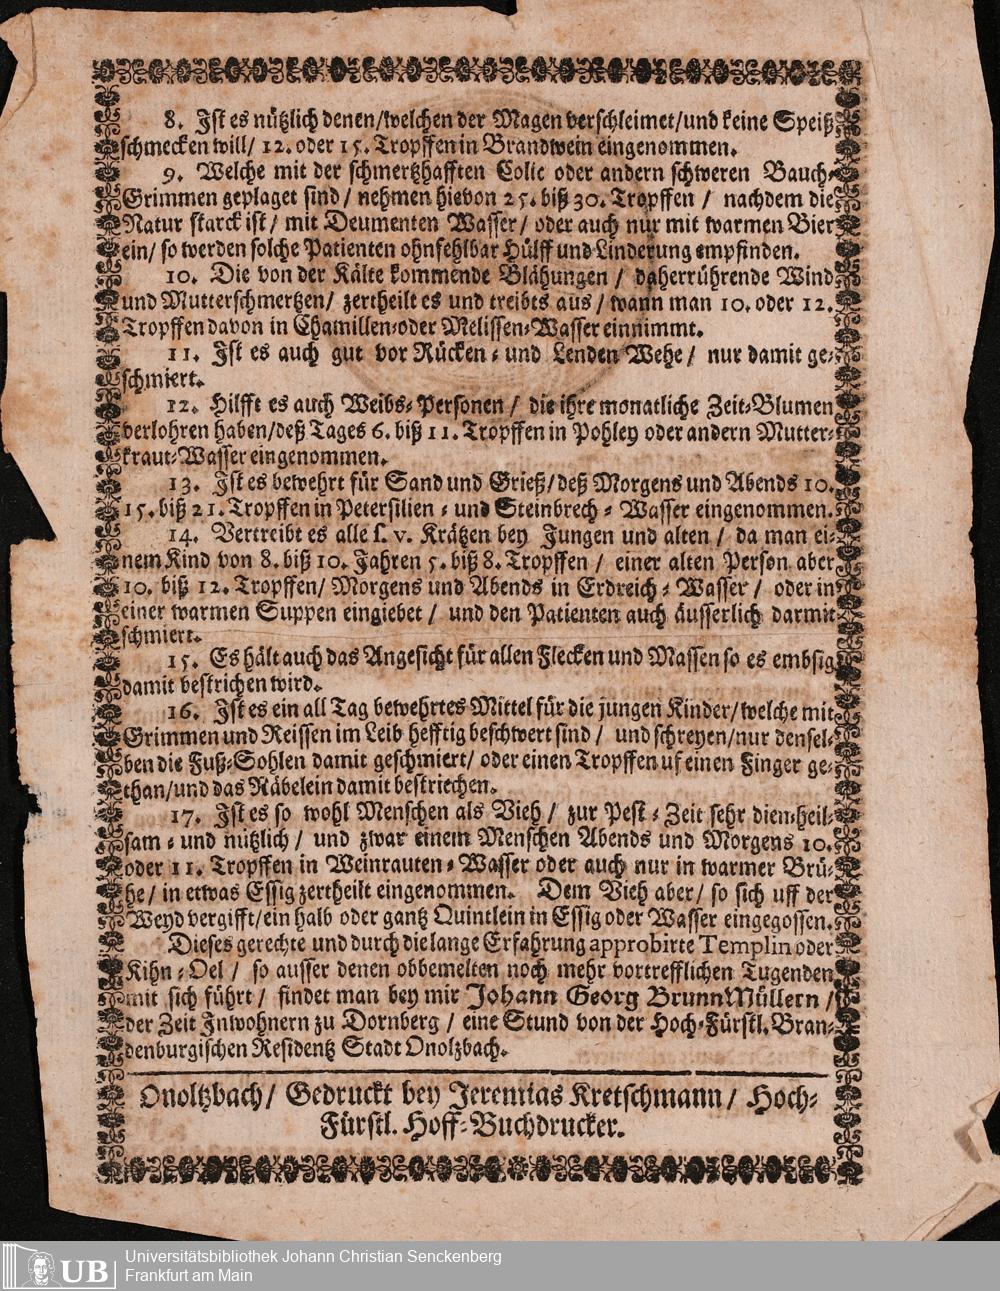 8. Ist es nützlich denen/welchen der Magen verschleimet/und keine Speiß
schmecken will/ 12. oder 15. Tropffen in Brandwein eingenommen.
9. Welche mit der schmertzhafften Colic oder andern schweren Bauch-
Grimmen geplaget sind/ nehmen hievon 25. biß 30. Tropffen / nachdem die
Natur starck ist/ mit Deumenten Wasser/ oder auch nur mit warmen Bier
ein/ so werden solche Patienten ohnfehlbar Hülff und Linderung empfinden.
10. Die von der Kälte kommende Blähungen / daherrührende Wind
und Mutterschmertzen/ zertheilt es und treibts aus/ wann man 10. oder 12.
Tropffen davon in Chamillen-oder Melissen-Wasser einnimmt.
11. Ist es auch gut vor Rücken- und Lenden Wehe/ nur damit ge-
schmiert.
12. Hilfft es auch Weibs-Personen / die ihre monatliche Zeit-Blumen
verlohren haben/deß Tages 6. biß 11. Tropffen in Pohley oder andern Mutter-
kraut-Wasser eingenommen.
13. Ist es bewehrt für Sand und Grieß/deß Morgens und Abends 10.
15. biß 21. Tropffen in Petersilien- und Steinbrech- Wasser eingenommen.
14. Vertreibt es alle s. v. Krätzen bey Jungen und alten / da man ei-
nem Kind von 8. biß 10. Jahren 5. biß 8. Tropffen / einer alten Person aber
10. biß 12. Tropffen/ Morgens und Abends in Erdreich- Wasser / oder in
einer warmen Suppen eingiebet / und den Patienten auch äusserlich darmit
schmiert.
15. Es hält auch das Angesicht für allen Flecken und Massen so es embsig
damit bestrichen wird.
16. Ist es ein all Tag bewehrtes Mittel für die jungen Kinder/welche mit
Grimmen und Reissen im Leib hefftig beschwert sind / und schreyen/nur densel-
ben die Fuß-Sohlen damit geschmiert/ oder einen Tropffen uf einen Finger ge-
than/und das Näbelein damit bestriechen.
17. Ist es so wohl Menschen als Vieh/ zur Pest-Zeit sehr dien-heil-
sam- und nützlich/ und zwar einem Menschen Abends und Morgens 10.
oder 11. Tropffen in Weinrauten-Wasser oder auch nur in warmer Brü-
he/ in etwas Essig zertheilt eingenommen. Dem Vieh aber/ so sich uff der
Weyd vergifft/ein halb oder gantz Quintlein in Essig oder Wasser eingegossen.
Dieses gerechte und durch die lange Erfahrung approbirte Templin oder
Kihn-Oel / so ausser denen obbemelten noch mehr vortrefflichen Tugenden
mit sich führt/ findet man bey mir Johann Georg BrunnMüllern /
der Zeit Inwohnern zu Dornberg / eine Stund von der Hoch-Fürstl. Bran-
denburgischen Residentz Stadt Onolzbach.
Onoltzbach/ Gedruckt bey Jeremias Kretschmann/ Hoch-
Fürstl. Hoff-Buchdrucker.
UB
Universitätsbibliothek Johann Christian Senckenberg
Frankfurt am Main